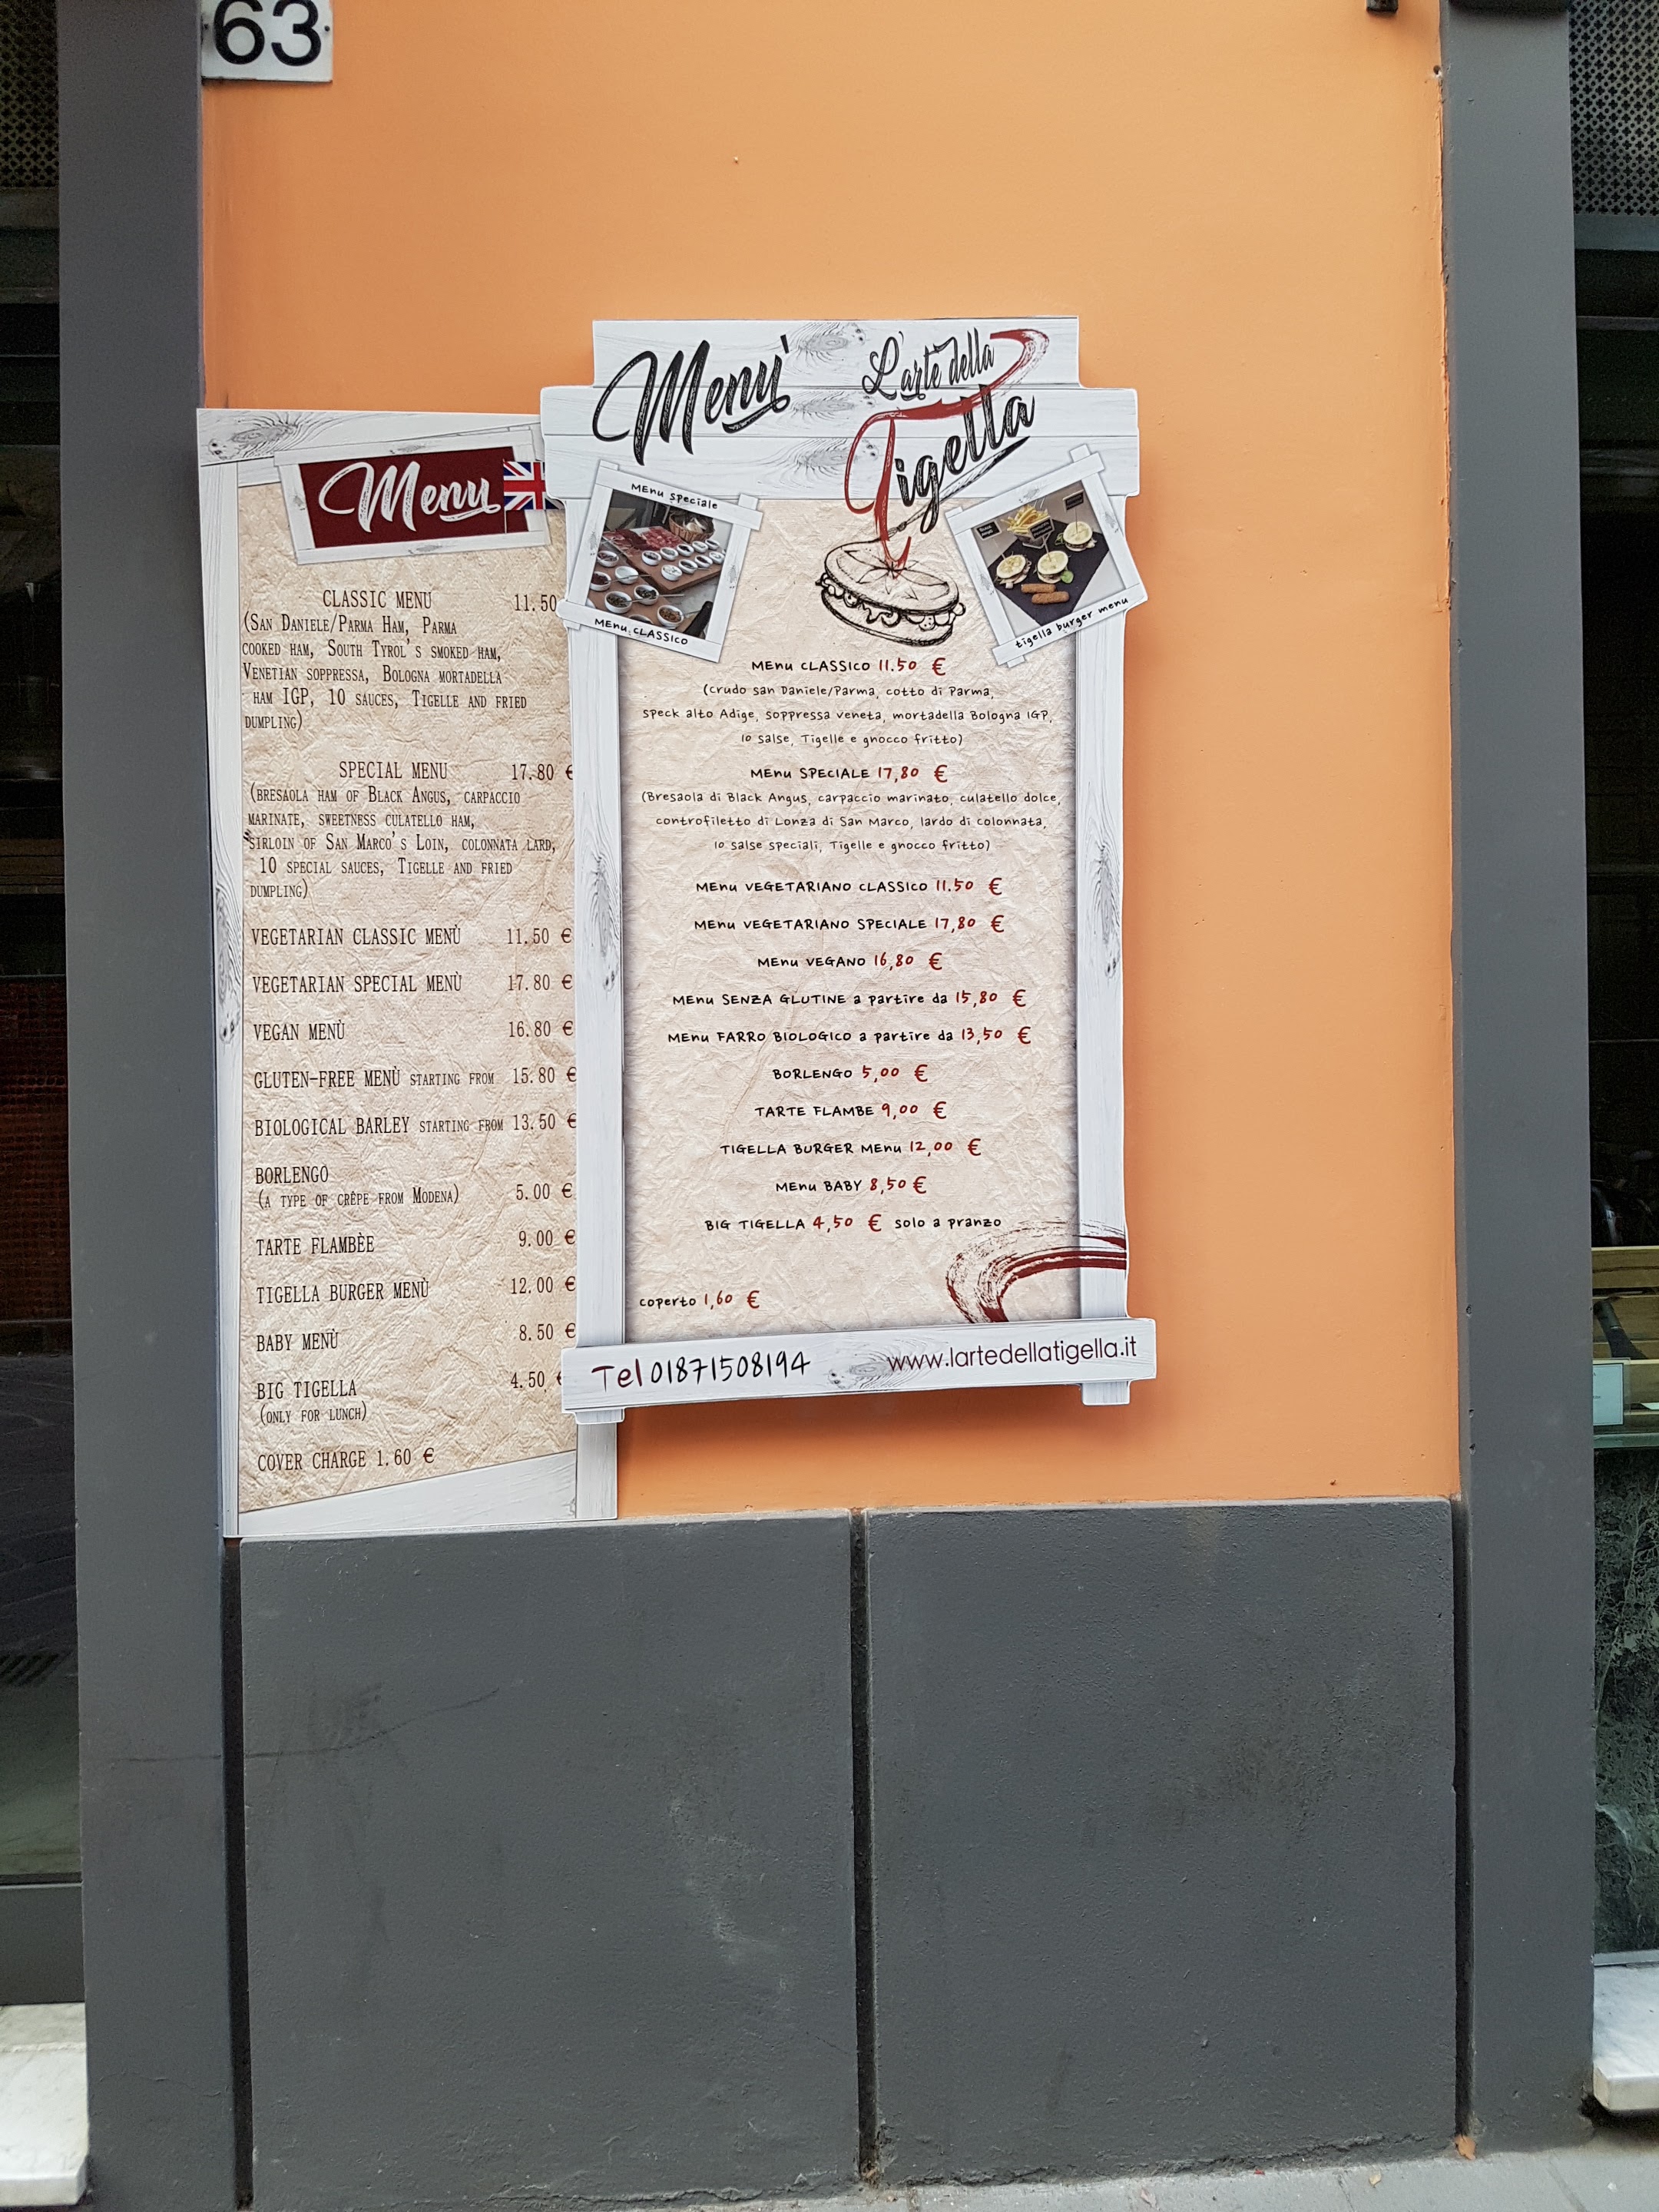 63
Menu
CLASSIC MENU 11.50
(San Daniele/Parma Ham, Parma
cooked ham, South Tyrol's smoked ham,
Venetian soppressa, Bologna mortadella
ham IGP, 10 sauces, Tigelle and fried
dumpling)
SPECIAL MENU 17.80 €
(bresaola ham of Black Angus, carpaccio
marinate, sweetness culatello ham,
sirloin of San Marco's Loin, colonnata lard,
10 special sauces, Tigelle and fried
dumpling)
VEGETARIAN CLASSIC MENÙ 11.50 €
VEGETARIAN SPECIAL MENÙ 17.80 €
VEGAN MENÙ 16.80 €
GLUTEN-FREE MENÙ starting from 15.80 €
BIOLOGICAL BARLEY starting from 13.50 €
BORLENGO
(a type of crêpe from Modena) 5.00 €
TARTE FLAMBÈE 9.00 €
TIGELLA BURGER MENÙ 12.00 €
BABY MENÙ 8.50 €
BIG TIGELLA 4.50 €
(only for lunch)
COVER CHARGE 1.60 €
Menu'
L'arte della
Tigella
MEnu speciale
MEnu CLASSICO
tigella burger menu
MEnu CLASSICO 11.50 €
(crudo san Daniele/Parma, cotto di Parma,
speck alto Adige, soppressa veneta, mortadella Bologna IGP,
10 salse, Tigelle e gnocco fritto)
MEnu SPECIALE 17,80 €
(Bresaola di Black Angus, carpaccio marinato, culatello dolce,
controfiletto di Lonza di San Marco, lardo di colonnata,
10 salse speciali, Tigelle e gnocco fritto)
MEnu VEGETARIANO CLASSICO 11.50 €
MEnu VEGETARIANO SPECIALE 17,80 €
MEnu VEGANO 16,80 €
MEnu SENZA GLUTINE a partire da 15,80 €
MEnu FARRO BIOLOGICO a partire da 13,50 €
BORLENGO 5,00 €
TARTE FLAMBE 9,00 €
TIGELLA BURGER MEnu 12,00 €
MEnu BABY 8,50 €
BIG TIGELLA 4,50 € solo a pranzo
coperto 1,60 €
Tel 01871508194
www.lartedellatigella.it